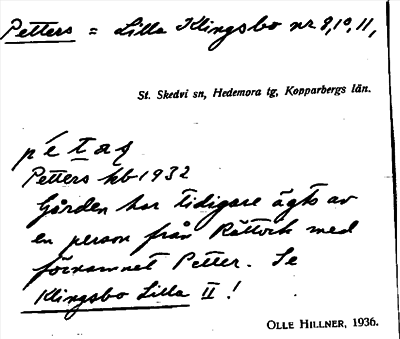 Petters = Lilla Klingsbo nr 8, 10, 11,
St. Skedvi sn, Hedemora tg, Kopparbergs län.
Petters hb 1932
Gården har tidigare ägts av
en person från Rättvik med
förnamnet Petter. Se
Klingsbo Lilla II!
OLLE HILLNER, 1936.